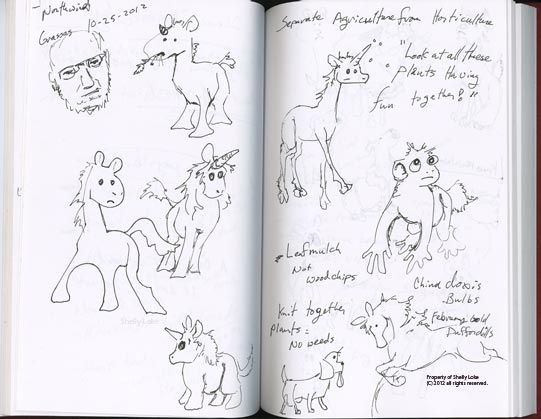 - Northwind
Grasses
10-25-2012
Shelly Loke
Separate Agriculture from Horticulture
"Look at all these
Plants Having
fun together!"
Leafmulch
Not
woodchips
Knit together
Plants =
No weeds
China doxis
Bulbs
February Gold
Daffodills
Property of Shelly Loke
(C) 2012 all rights reserved.